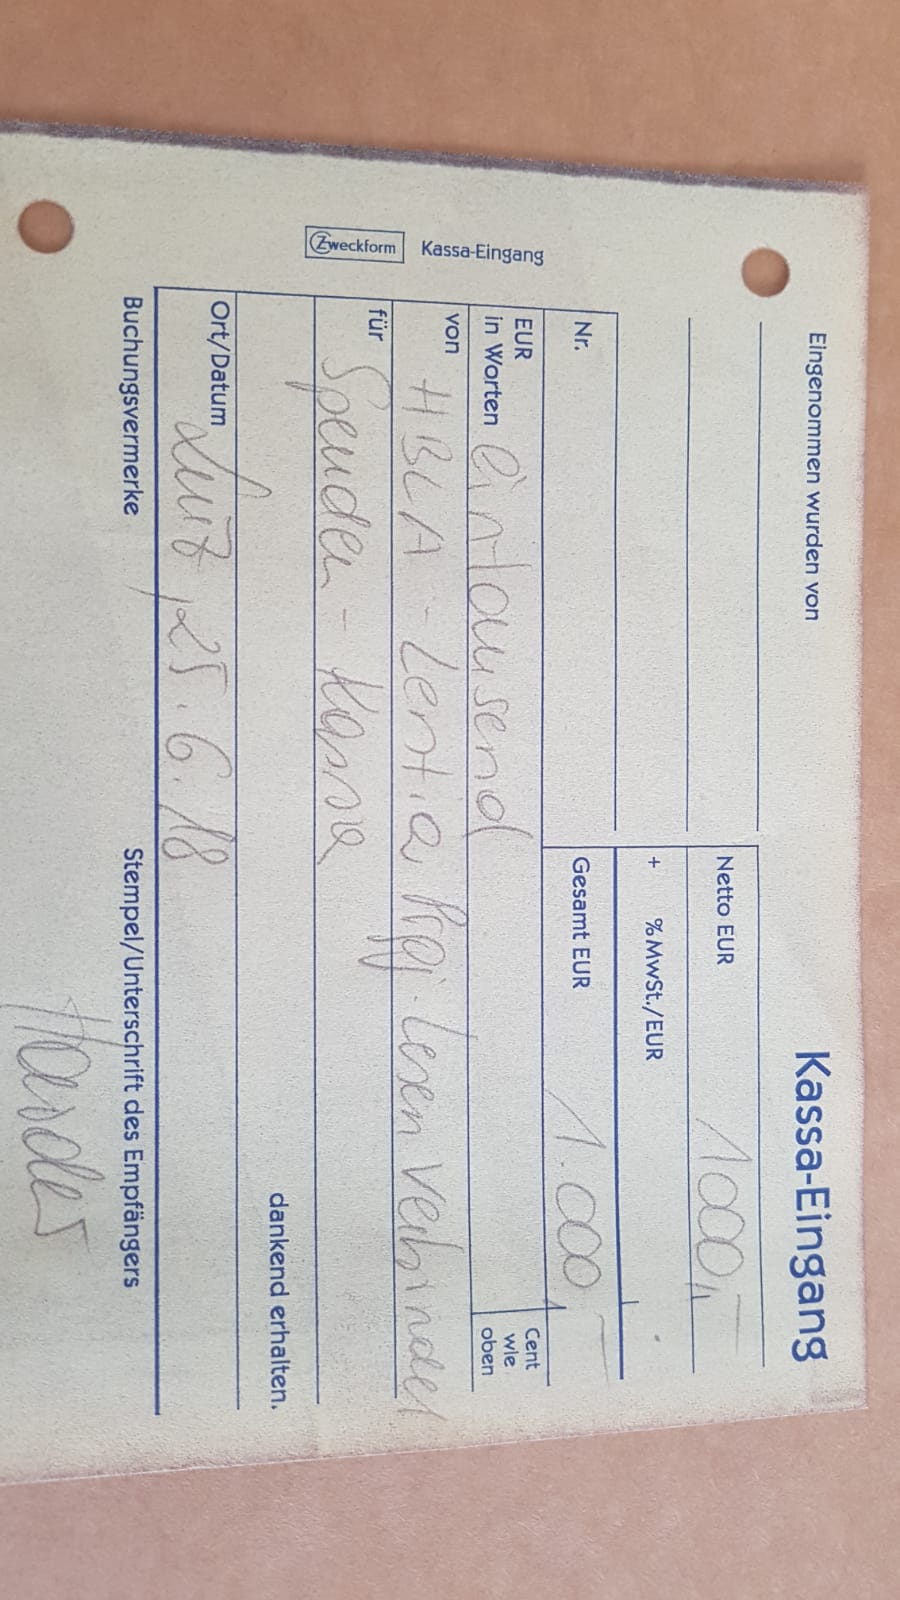 Kassa-Eingang
Eingenommen wurden von
Netto EUR 1000,,-
+ % MwSt./EUR
Nr. Gesamt EUR 1.000,-
EUR in Worten Eintausend Cent wie oben
von HBLA-Lentia, Proj. Lesen verbindet
für Spenden-Kassa
dankend erhalten.
Ort/Datum Linz, 25.6.18
Buchungsvermerke Stempel/Unterschrift des Empfängers
Zweckform Kassa-Eingang